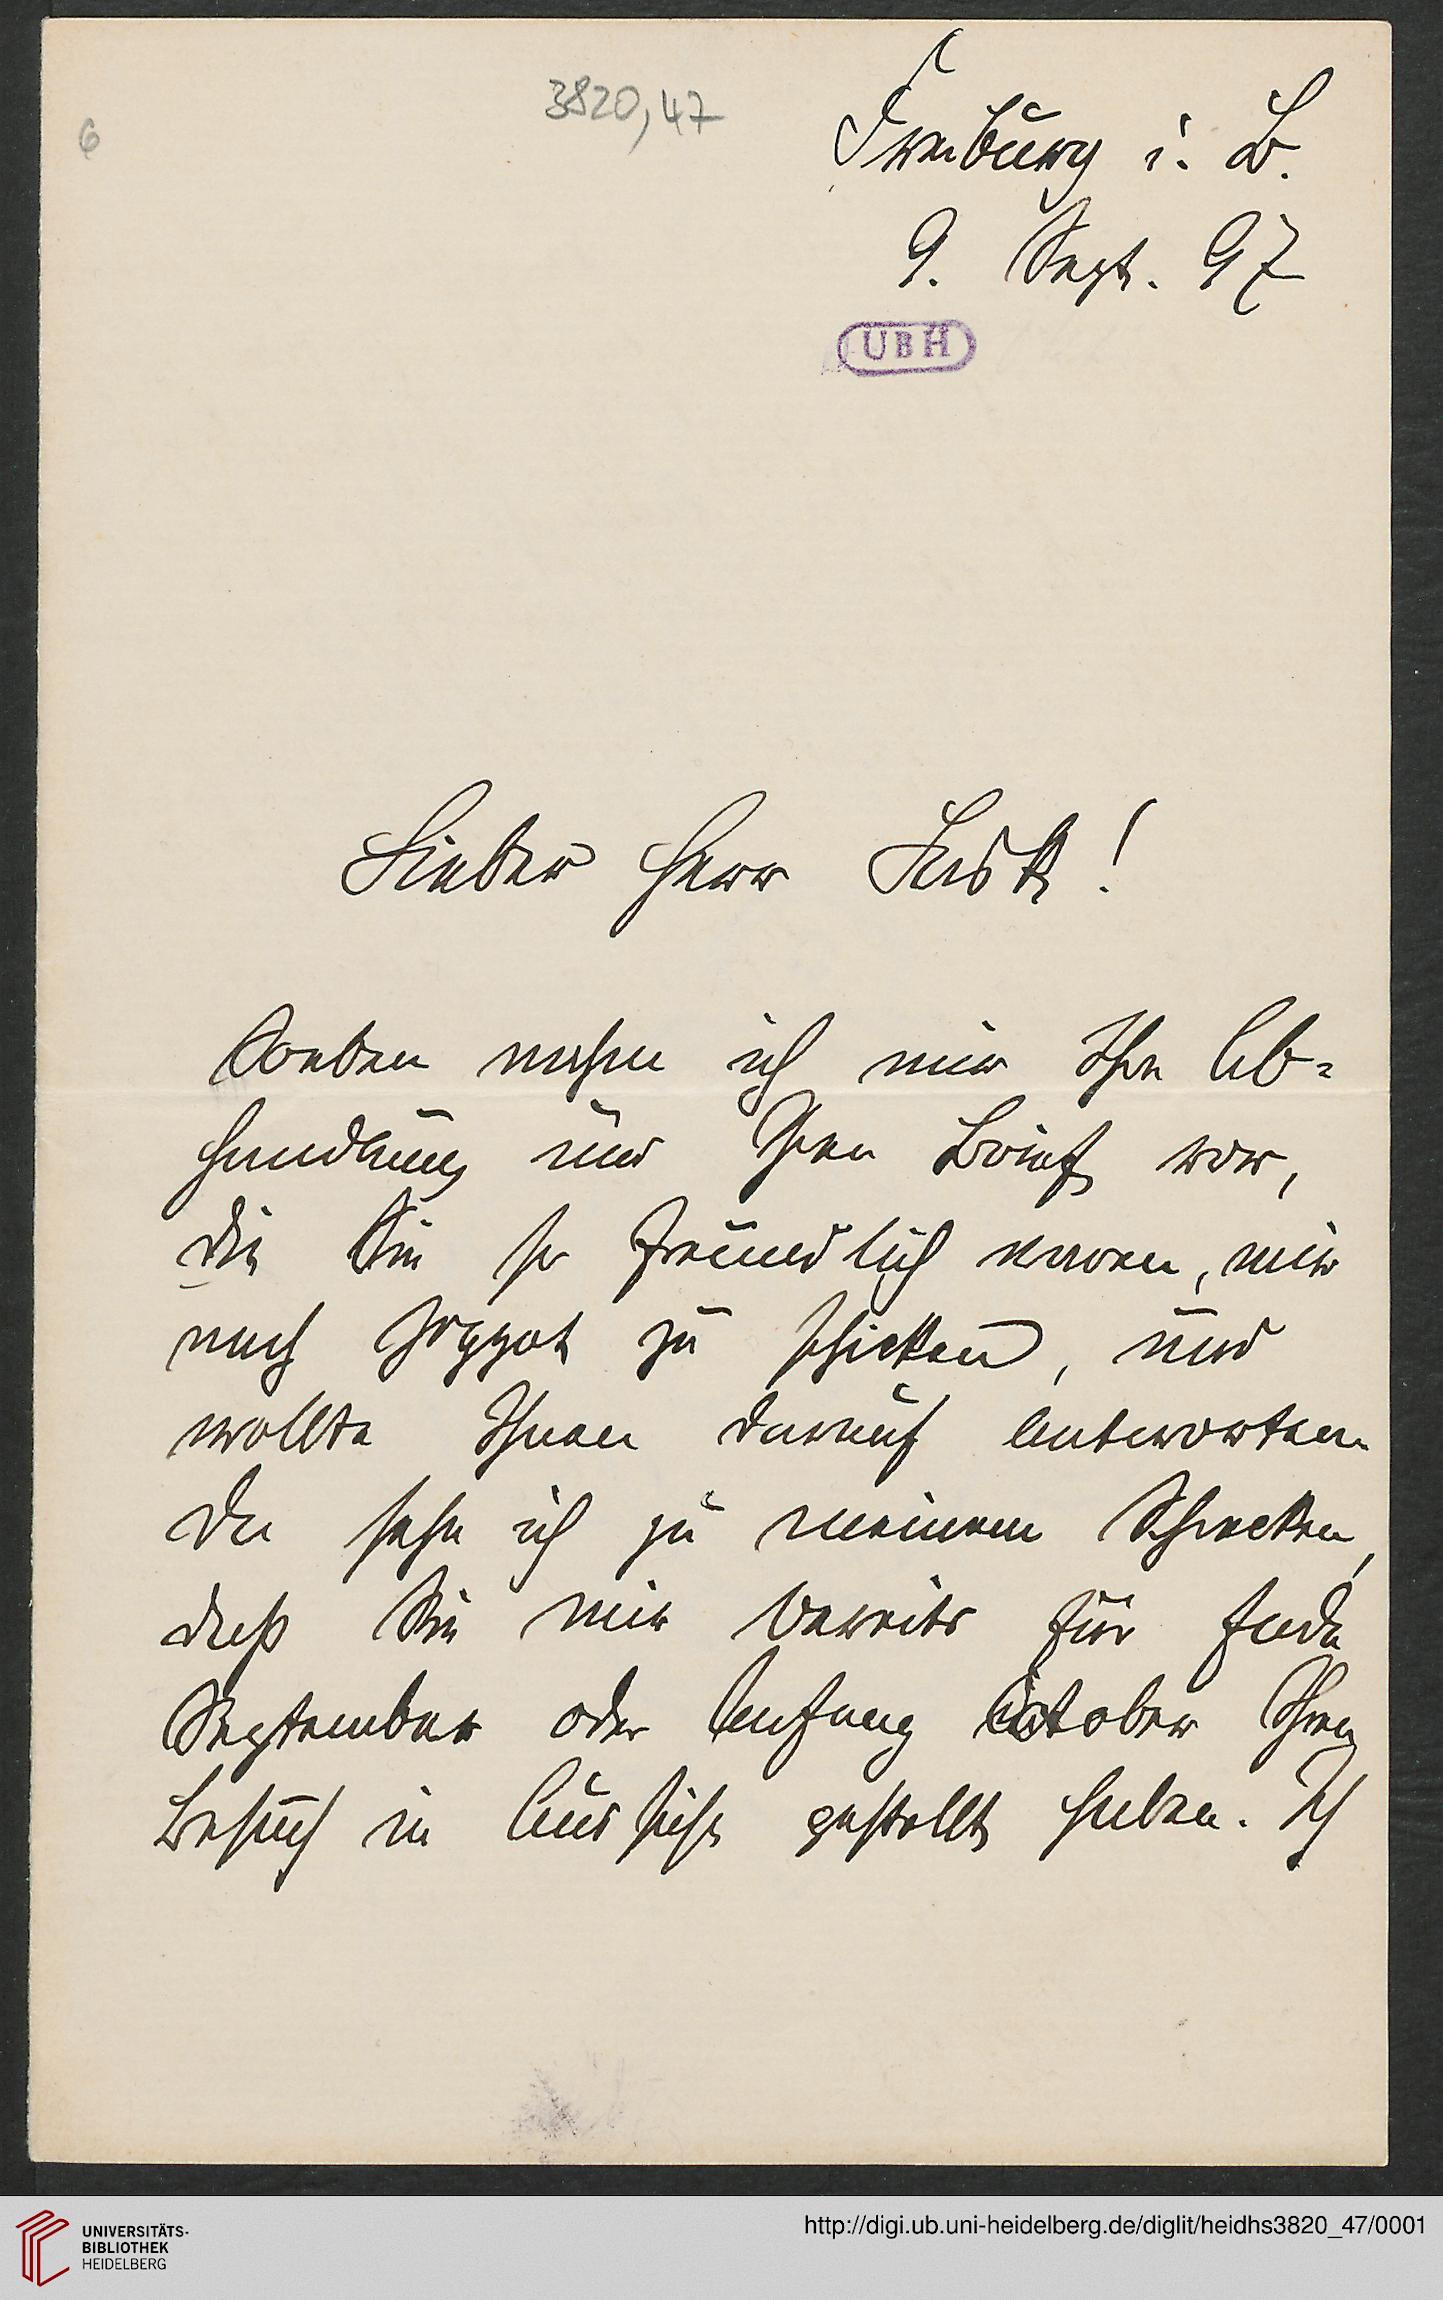 3820,47
6
Freiburg i. B.
9. Sept. 97
UBH
Lieber Herr Lask!
Soeben nehme ich mir Ihre Ab=
handlung und Ihren Brief vor,
die Sie so freundlich waren, mir
nach Zoppot zu schicken, und
wollte Ihnen darauf antworten.
Da sehe ich zu meinem Schrecken,
daß Sie mir bereits für Ende
September oder Anfang October Ihren
Besuch in Aussicht gestellt haben. Ich
UNIVERSITÄTS-
BIBLIOTHEK
HEIDELBERG
http://digi.ub.uni-heidelberg.de/diglit/heidhs3820_47/0001